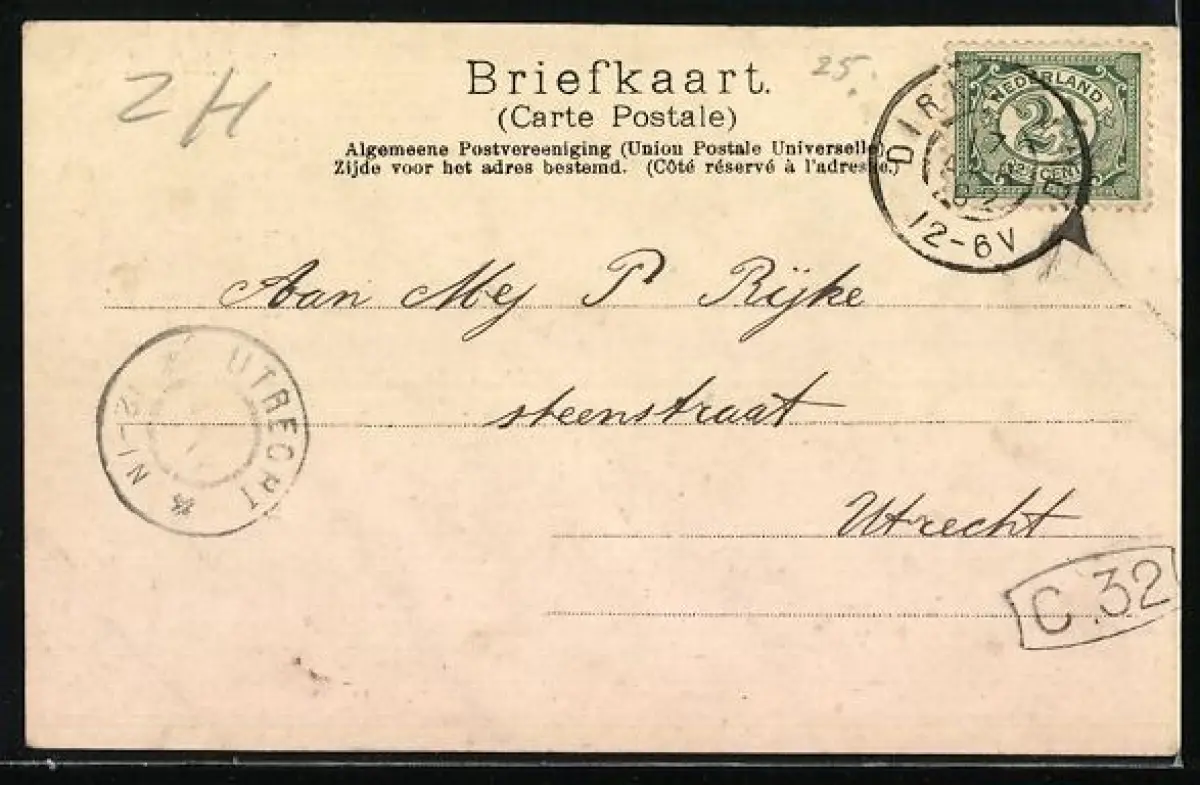 ZH
25.
Briefkaart.
(Carte Postale)
Algemeene Postvereeniging (Union Postale Universelle)
Zijde voor het adres bestemd. (Côté réservé à l'adresse.)
NEDERLAND
2½
CENT
12-6V
Aan Mej P Rijke
steenstraat
Utrecht
UTRECHT
C.32